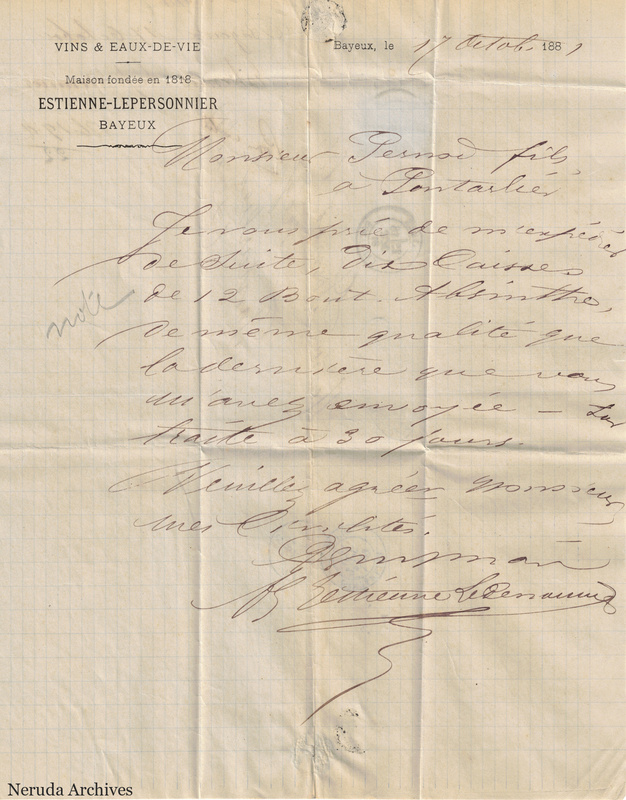 VINS & EAUX-DE-VIE
Maison fondée en 1818
ESTIENNE-LEPERSONNIER
BAYEUX
Bayeux, le 17 Octob. 1881
Monsieur Pernod fils
à Pontarlier
Je vous prie de m'expédier
de suite, dix Caisses
de 12 Bout. Absinthe,
de même qualité que
la dernière que vous
m'avez envoyée —
traite à 30 jours.
Veuillez agréer Monsieur
mes Civilités.
Estienne Lepersonnier
noté
Neruda Archives